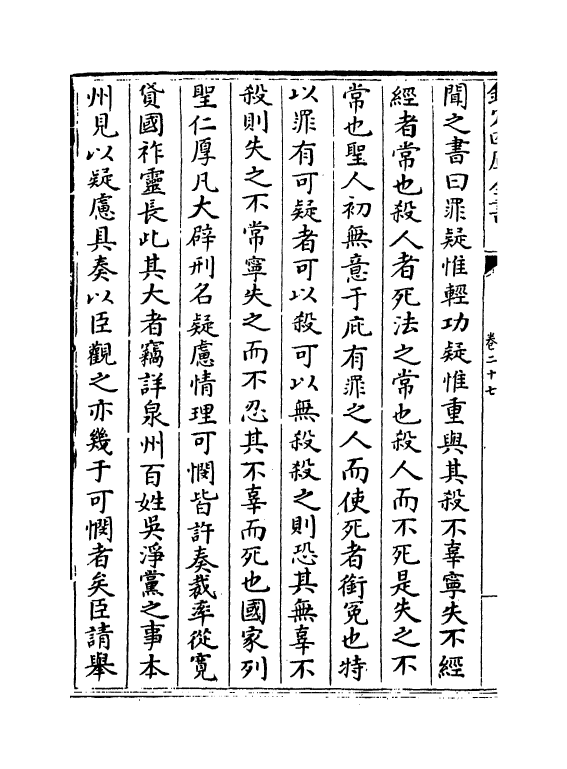 卷二十七
聞之書曰罪疑惟輕功疑惟重與其殺不辜寧失不經
經者常也殺人者死法之常也殺人而不死是失之不
常也聖人初無意于庇有罪之人而使死者銜冤也特
以罪有可疑者可以殺可以無殺殺之則恐其無辜不
殺則失之不常寧失之而不忍其不辜而死也國家列
聖仁厚凡大辟刑名疑慮情理可憫皆許奏裁率從寛
貸國祚靈長此其大者竊詳泉州百姓吳淨黨之事本
州見以疑慮具奏以臣觀之亦幾于可憫者矣臣請舉